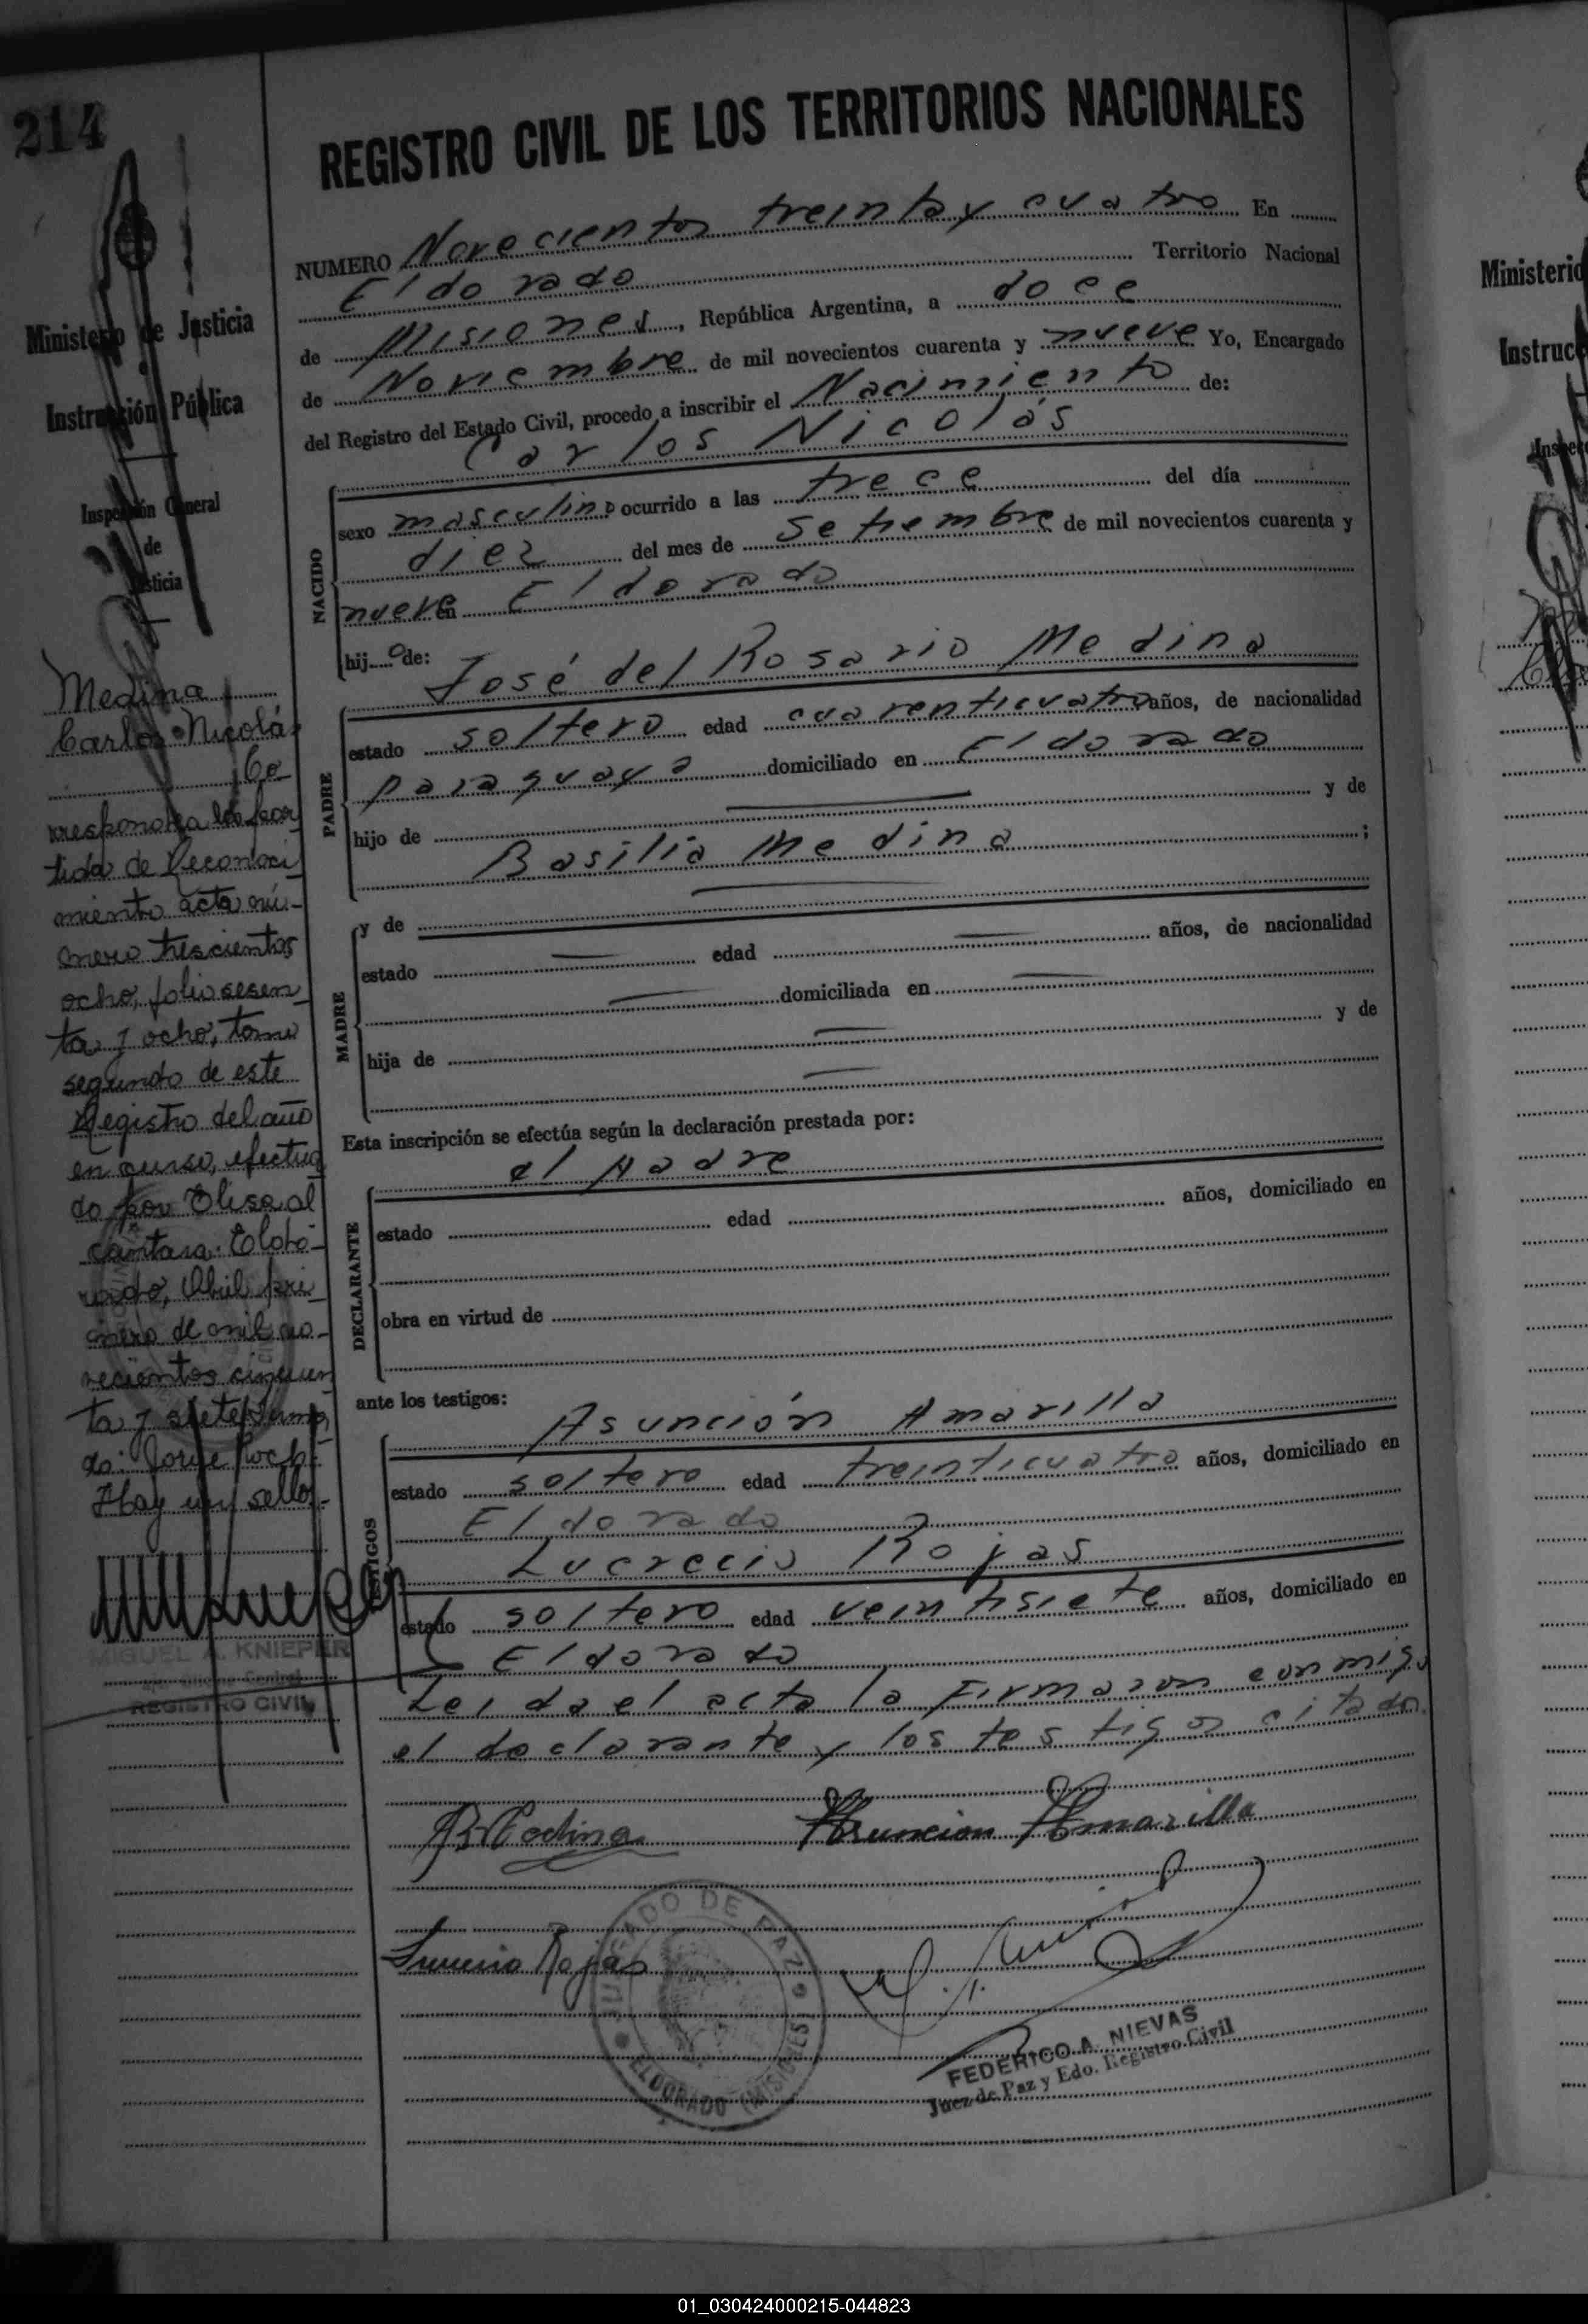 214
REGISTRO CIVIL DE LOS TERRITORIOS NACIONALES
Ministerio de Justicia
Instrucción Pública
Inspección General
de
Justicia
NUMERO Novecientos treinta y cuatro En
Eldorado Territorio Nacional
de Misiones, República Argentina, a doce
de Noviembre de mil novecientos cuarenta y nueve Yo, Encargado
del Registro del Estado Civil, procedo a inscribir el Nacimiento de:
Carlos Nicolás
NACIDO
sexo masculino ocurrido a las trece del día
diez del mes de Setiembre de mil novecientos cuarenta y
nueve en Eldorado
hijo de:
José del Rosario Medina
PADRE
estado soltero edad cuarenticuatro años, de nacionalidad
paraguaya domiciliado en Eldorado
hijo de — y de
Basilia Medina ;
MADRE
y de —
estado — edad — años, de nacionalidad
— domiciliada en —
hija de — y de
—
Esta inscripción se efectúa según la declaración prestada por:
el padre
DECLARANTE
estado edad años, domiciliado en
obra en virtud de
ante los testigos:
Asunción Amarilla
TESTIGOS
estado soltero edad treinticuatro años, domiciliado en
Eldorado
Lucrecio Rojas
estado soltero edad veintisiete años, domiciliado en
Eldorado
Leida el acta la firmaron conmigo
el declarante y los testigos citados.
Medina
Carlos Nicolás
Co
rresponde a la par
tida de Reconoci
miento acta nú-
mero trescientos
ocho, folio sesen
ta y ocho, tomo
segundo de este
Registro del año
en curso, efectua
do por Elisa Al
cántara. Eldo-
rado, Abril pri
mero de mil no-
vecientos cincuen
ta y siete. Firma
do: Jorge
Hay un sello.
MIGUEL A. KNIEPER
REGISTRO CIVIL
Medina
Asuncion Amarilla
Rojas
JUZGADO DE PAZ
ELDORADO (MISIONES)
FEDERICO A. NIEVAS
Juez de Paz y Edo. Registro Civil
Ministerio
Instruc
Inspec
01_030424000215-044823